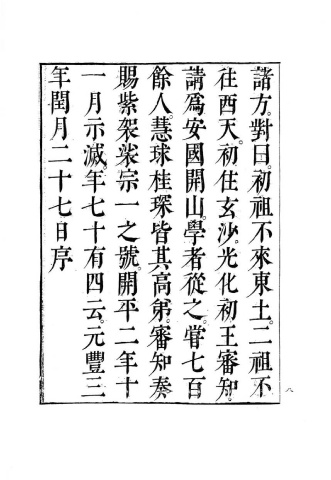 諸方。對曰。初祖不來東土。二祖不
往西天。初住玄沙。光化初王審知。
請爲安國開山。學者從之。甞七百
餘人。慧球桂琛皆其高弟。審知奏
賜紫袈裟宗一之號開平二年十
一月示滅。年七十有四云。元豐三
年閏月二十七日序
八